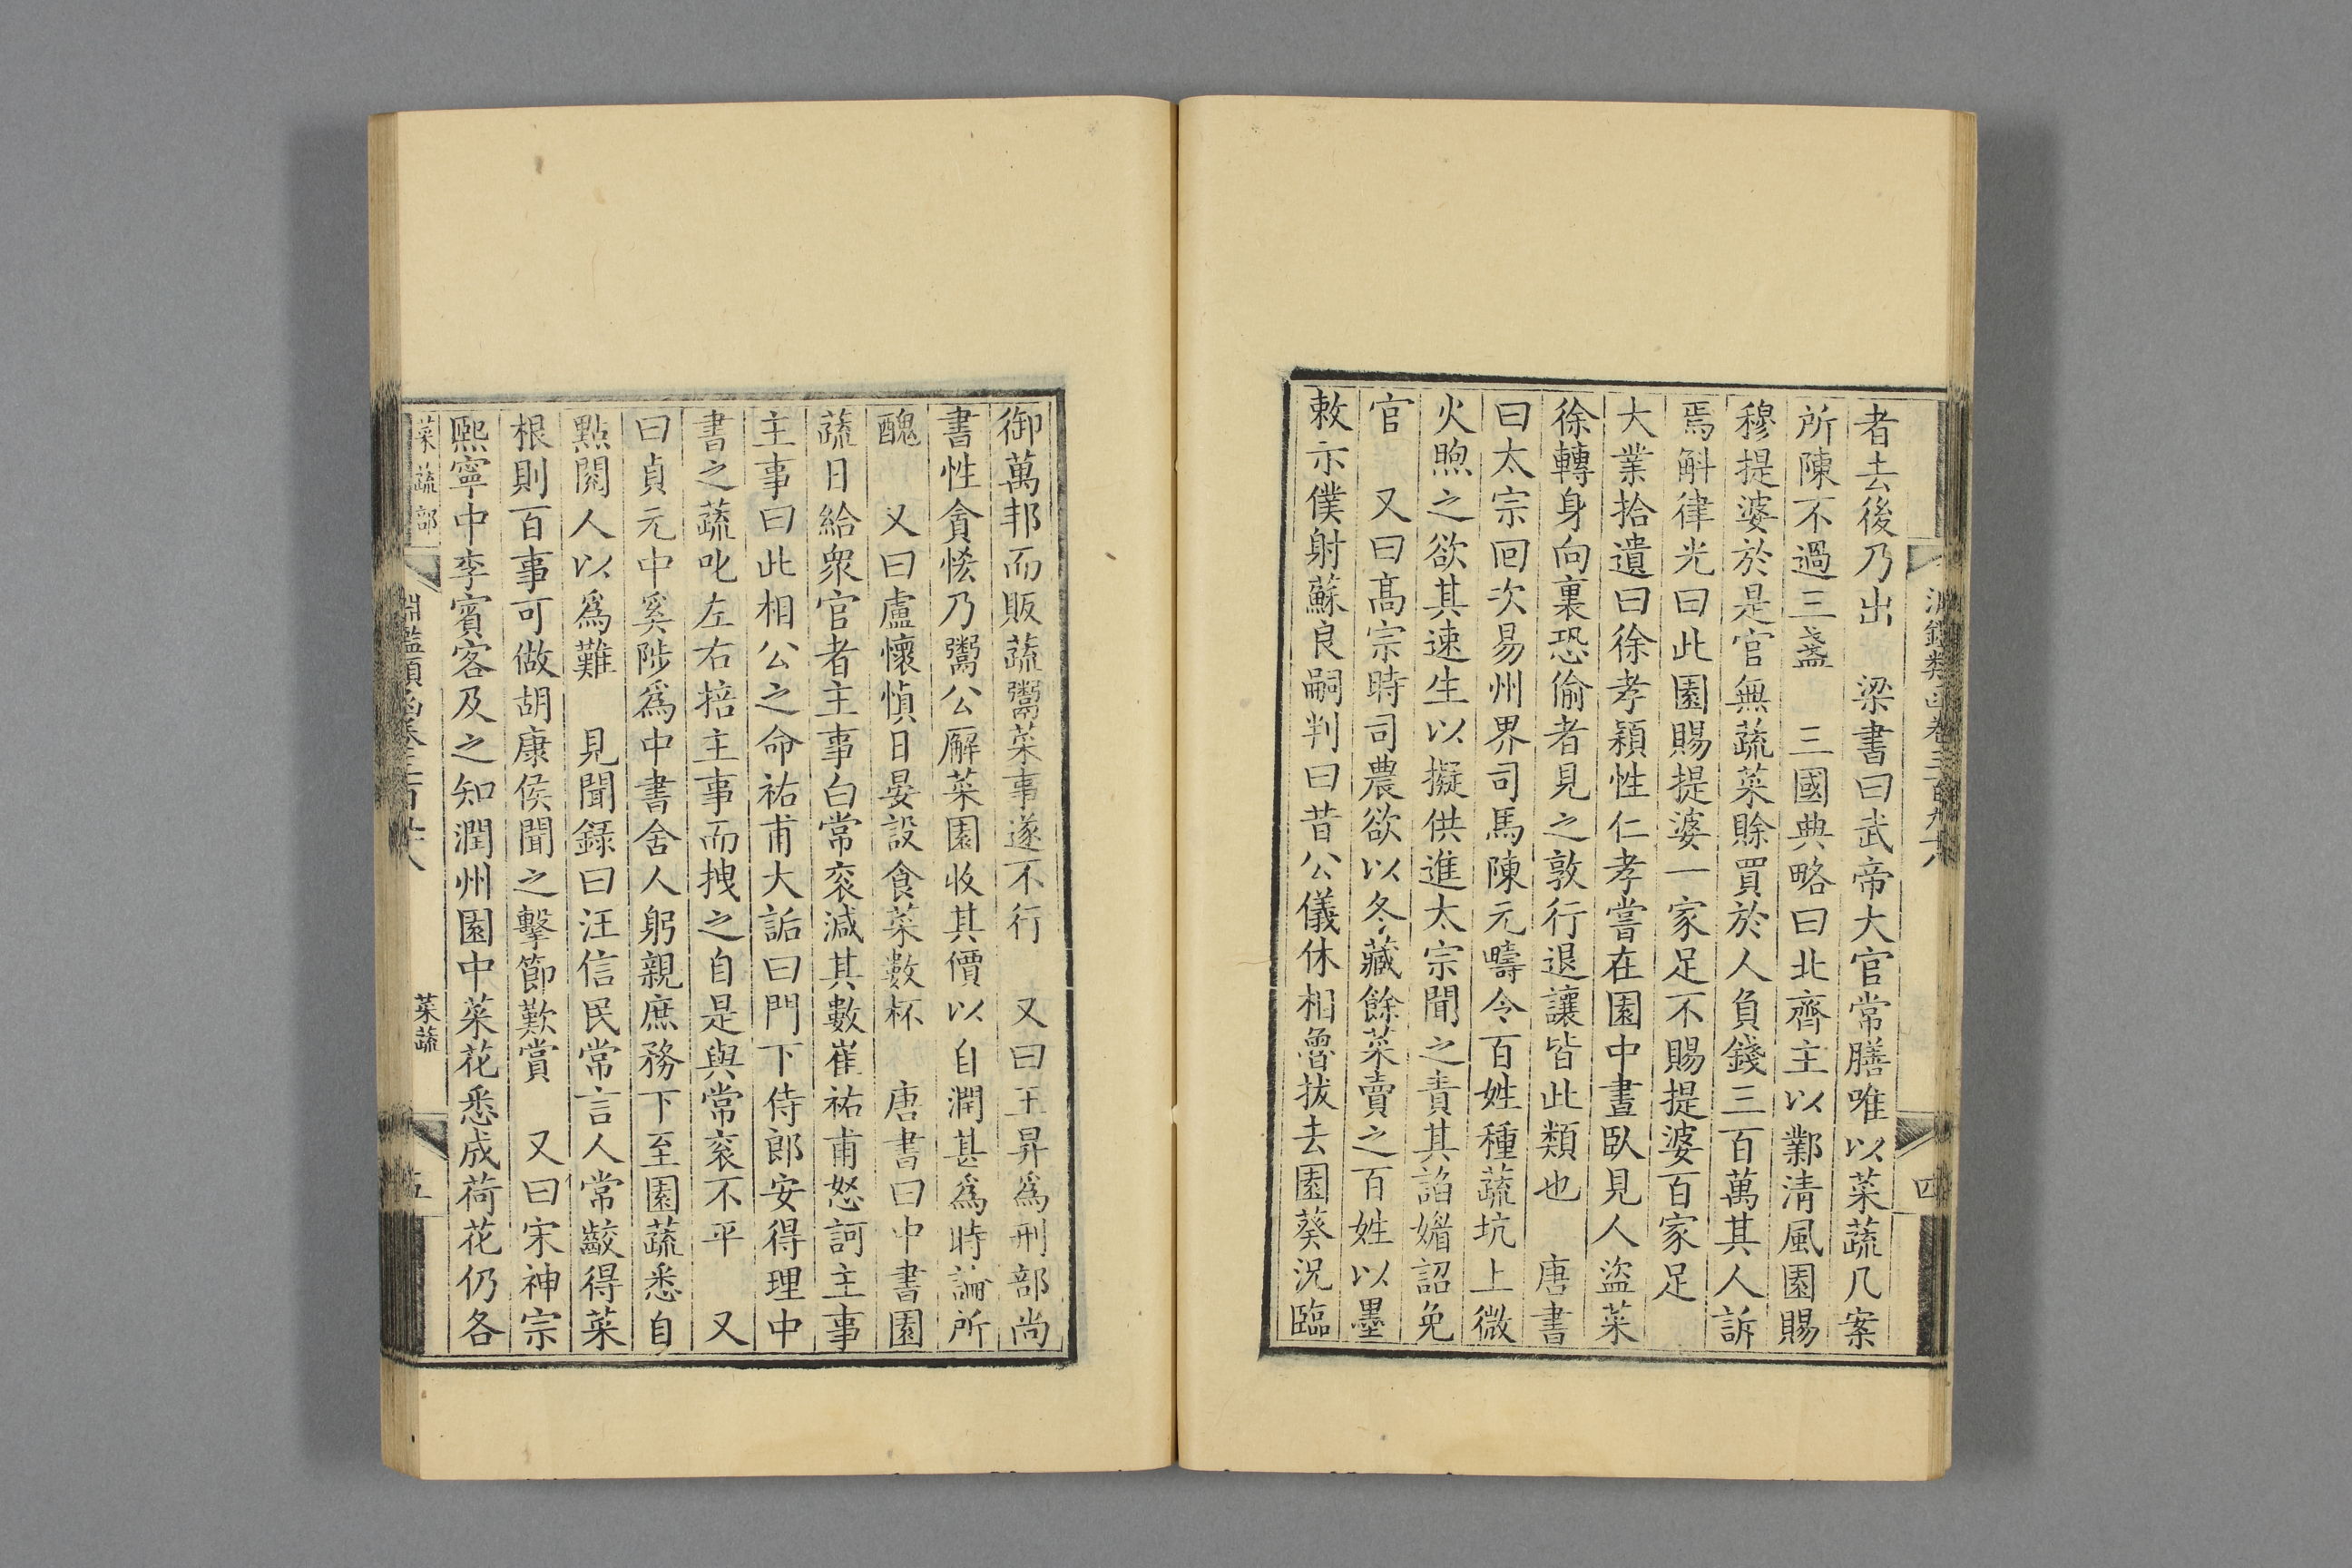 淵鑑類函卷三百九十八
四
者去後乃出　梁書曰武帝大官常膳唯以菜蔬几案
所陳不過三盞　三國典略曰北齊主以鄴清風園賜
穆提婆於是官無蔬菜賒買於人負錢三百萬其人訴
焉斛律光曰此園賜提婆一家足不賜提婆百家足
大業拾遺曰徐孝穎性仁孝嘗在園中晝臥見人盜菜
徐轉身向裏恐偷者見之敦行退讓皆此類也　唐書
曰太宗回次易州界司馬陳元疇令百姓種蔬坑上微
火煦之欲其速生以擬供進太宗聞之責其諂媚詔免
官　又曰高宗時司農欲以冬藏餘菜賣之百姓以墨
敕示僕射蘇良嗣判曰昔公儀休相魯拔去園葵況臨
御萬邦而販蔬鬻菜事遂不行　又曰王昇爲刑部尚
書性貪恡乃鬻公廨菜園收其價以自潤甚爲時論所
醜　又曰盧懷慎日晏設食菜數杯　唐書曰中書園
蔬日給衆官者主事白常衮減其數崔祐甫怒訶主事
主事曰此相公之命祐甫大詬曰門下侍郎安得理中
書之蔬叱左右掊主事而拽之自是與常衮不平　又
曰貞元中奚陟爲中書舍人躬親庶務下至園蔬悉自
點閱人以爲難　見聞錄曰汪信民常言人常齩得菜
根則百事可做胡康侯聞之擊節歎賞　又曰宋神宗
熙寧中李賓客及之知潤州園中菜花悉成荷花仍各
菜蔬部
淵鑑類函卷三百九十八
菜蔬
五